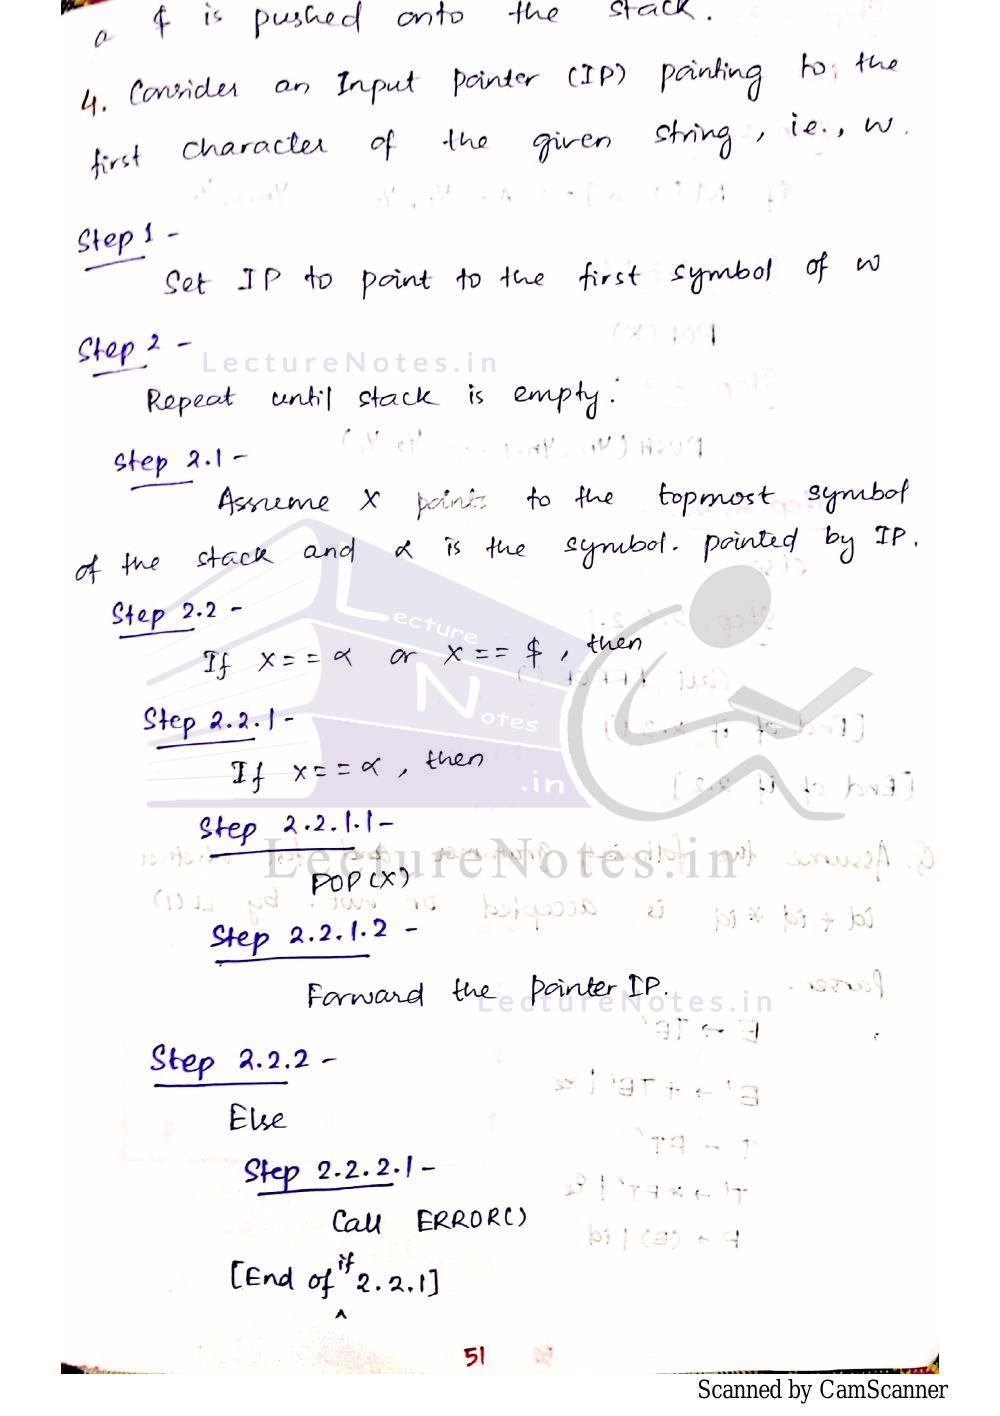 a $ is pushed onto the stack.
4. Consider an Input pointer (IP) pointing to the
first character of the given string, ie., w.
Step 1 -
Set IP to point to the first symbol of w
Step 2 -
LectureNotes.in
Repeat until stack is empty:
Step 2.1 -
Assume X points to the topmost symbol
of the stack and α is the symbol. pointed by IP.
Step 2.2 -
If X == α or X == $, then
Lecture
Step 2.2.1 -
Notes
If X == α, then
.in
Step 2.2.1.1 -
LectureNotes.in
POP(X)
Step 2.2.1.2 -
Forward the pointer IP.
LectureNotes.in
Step 2.2.2 -
Else
Step 2.2.2.1 -
Call ERROR()
[End of if 2.2.1]
51
Scanned by CamScanner